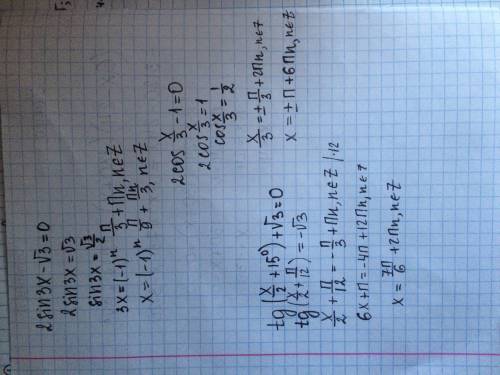 2sin3x-√3=0
2sin3x=√3
sin3x=√3/2
3x=(-1)ⁿ π/3+πn, n∈Z
x=(-1)ⁿ π/9+πn/3, n∈Z
2cos x/3-1=0
2cos x/3=1
cos x/3=1/2
x/3=±π/3+2πn, n∈Z
x=±π+6πn, n∈Z
tg(x/2+15⁰)+√3=0
tg(x/2+π/12)=-√3
x/2+π/12=-π/3+πn, n∈Z |·12
6x+π=-4π+12πn, n∈Z
x=7π/6+2πn, n∈Z